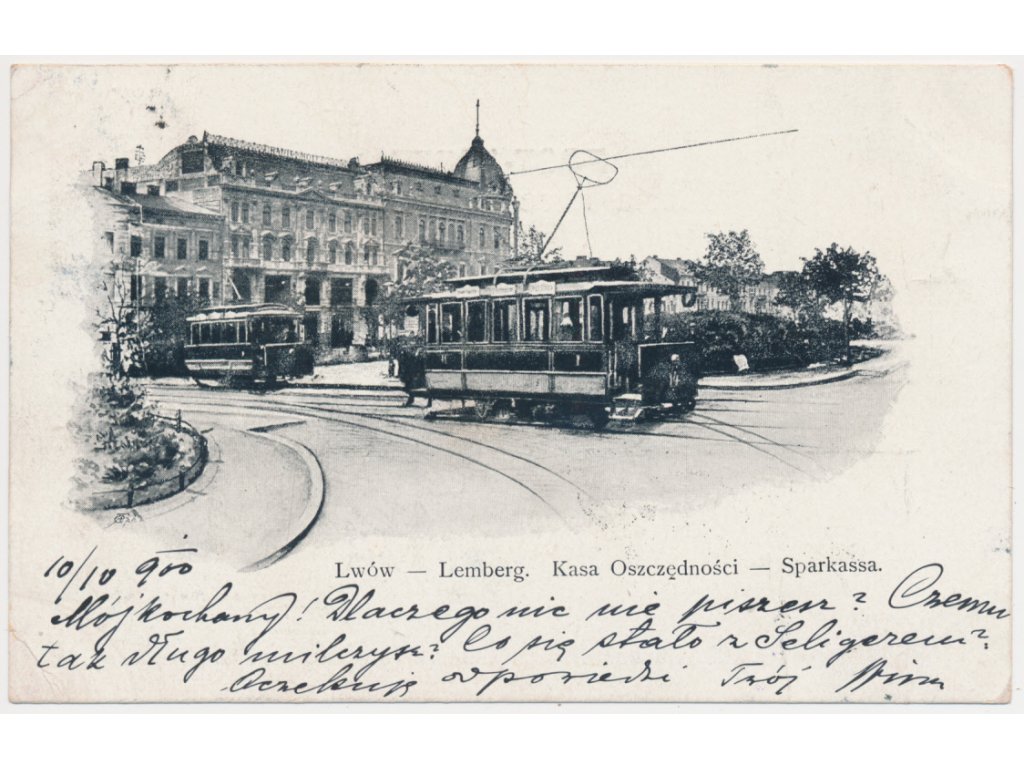 Lwów — Lemberg. Kasa Oszczędności — Sparkassa.
10/10 900
Mój kochany! Dlaczego nic nie piszesz? Czemu
tak długo milczysz? Co się stało z Seligerem?
Oczekuję odpowiedzi Twój